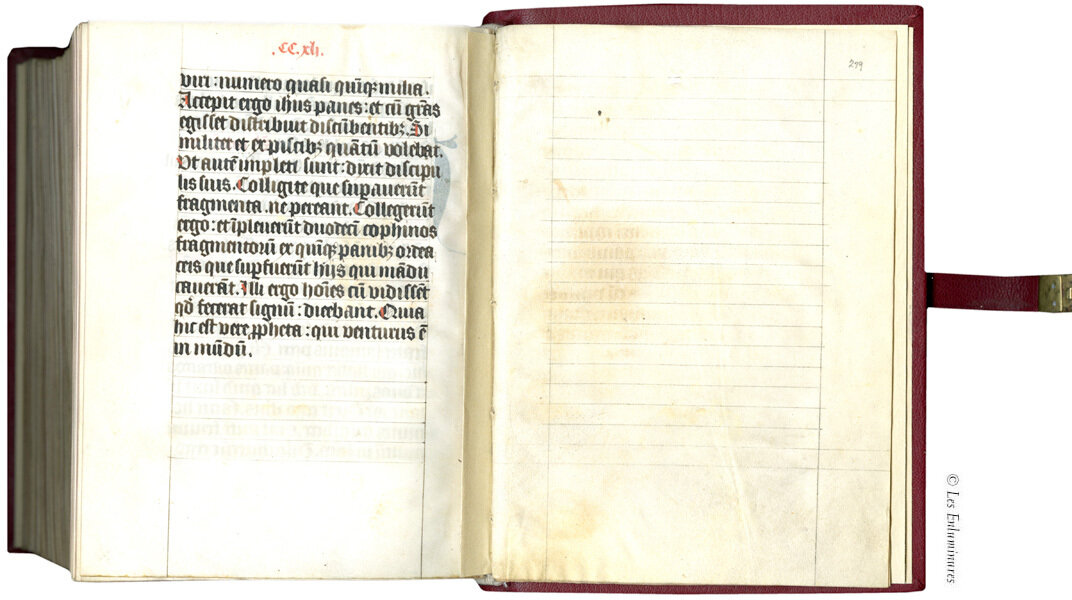 .CC.xli.
viri : numero quasi quīqꝫ milia.
Accepit ergo ihus panes : et cū grās
egisset distribuit discūbentibꝫ. Si
militer et ex piscibꝫ quātū volebāt.
Ut autē impleti sunt : dixit discipu
lis suis. Colligite que supauerūt
fragmenta. ne pereant. Collegerūt
ergo : et īpleuerūt duodecī cophinos
fragmentorū ex quīqꝫ panibꝫ ordea
ceis que supfuerūt hijs qui mādu
cauerāt. Illi ergo hoīes cū vidissēt
qd̄ fecerat signū : dicebant. Quia
hic est vere ꝓpheta : qui venturus ē
in mūdū.
299
© Les Enluminures